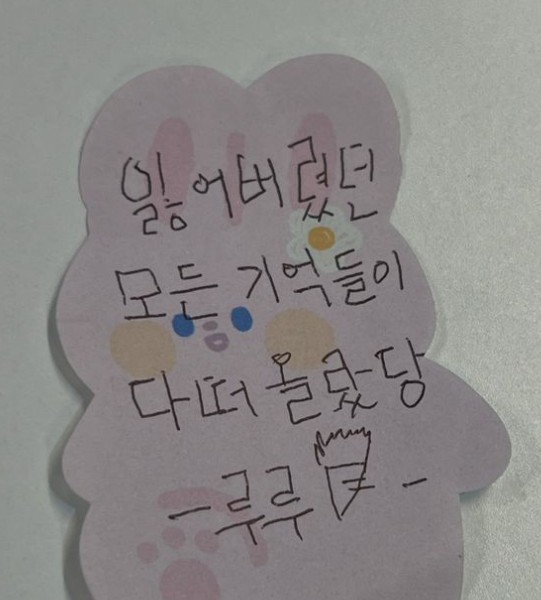 잃어버렸던
모든 기억들이
다 떠올랐당
-루루